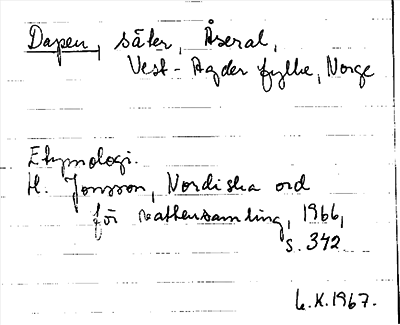 Dapen, säter, Åseral,
Vest-Agder fylke, Norge
Etymologi.
H. Jonsson, Nordiska ord
för vattensamling, 1966,
s. 342
L.K.1967.